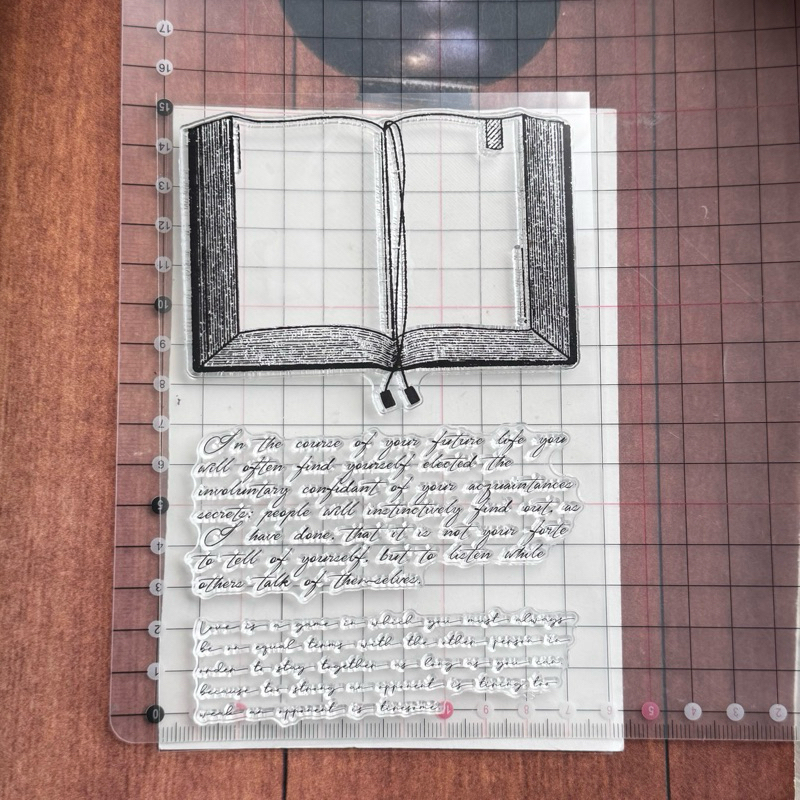 17
16
15
14
13
12
11
10
9
8
7
6
5
4
3
2
1
0
In the course of your future life you
will often find yourself elected the
involuntary confidant of your acquaintances
secrets: people will instinctively find out, as
I have done, that it is not your forte
to tell of yourself, but to listen while
others talk of themselves.
Love is a game in which you must always
be on equal terms with the other person in
order to stay together as long as you can,
because too strong an opponent is tiring too
weak an opponent is tiresome
1 5 4 3 2